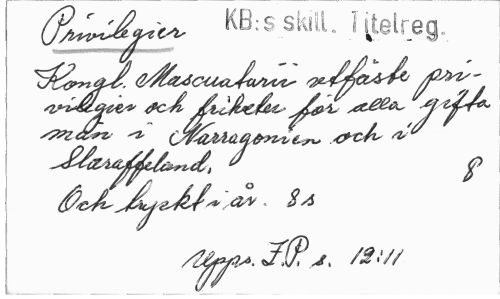 Privilegier
KB:s skill. Titelreg.
Kongl. Mascuatarii utfäste pri-
vilegier och friheter för alla gifta
män i Narragonien och i
Slaraffeland.
8
Och tryckt i år. 8 s
Upps. F.P. s. 12:11